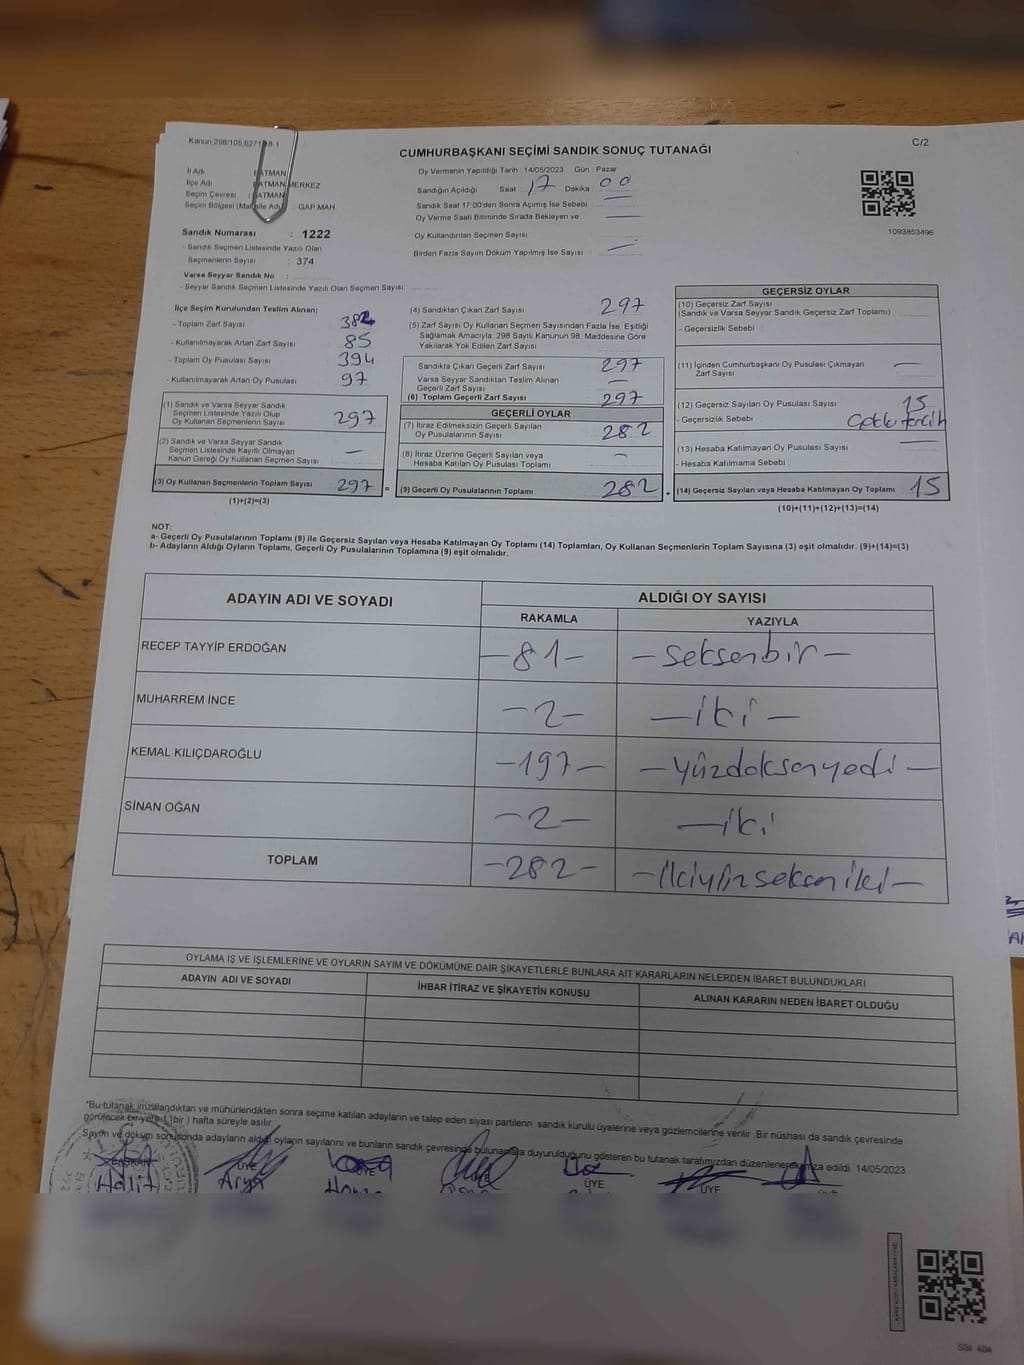 C/2
CUMHURBAŞKANI SEÇİMİ SANDIK SONUÇ TUTANAĞI
İl Adı : BATMAN
İlçe Adı : BATMAN MERKEZ
Seçim Çevresi : BATMAN
Seçim Bölgesi GAP MAH
Sandık Numarası : 1222
- Sandık Seçmen Listesinde Yazılı Olan
Seçmenlerin Sayısı : 374
Varsa Seyyar Sandık No :
- Seyyar Sandık Seçmen Listesinde Yazılı Olan Seçmen Sayısı
Oy Vermenin Yapıldığı Tarih : 14/05/2023 Gün : Pazar
Sandığın Açıldığı Saat 17 Dakika 00
Sandık Saat 17:00'den Sonra Açımış İse Sebebi
Oy Verme Saati Bitiminde Sırada Bekleyen ve
Oy Kullandırılan Seçmen Sayısı
Birden Fazla Sayım Döküm Yapılmış İse Sayısı
1093853496
İlçe Seçim Kurulundan Teslim Alınan;
- Toplam Zarf Sayısı 382
- Kullanılmayarak Artan Zarf Sayısı 85
- Toplam Oy Pusulası Sayısı 394
- Kullanılmayarak Artan Oy Pusulası 97
(1) Sandık ve Varsa Seyyar Sandık
Seçmen Listesinde Yazılı Olup
Oy Kullanan Seçmenlerin Sayısı 297
(2) Sandık ve Varsa Seyyar Sandık
Seçmen Listesinde Kayıtlı Olmayan
Kanun Gereği Oy Kullanan Seçmen Sayısı —
(3) Oy Kullanan Seçmenlerin Toplam Sayısı 297
(1)+(2)=(3)
(4) Sandıktan Çıkan Zarf Sayısı 297
(5) Zarf Sayısı Oy Kullanan Seçmen Sayısından Fazla İse, Eşitliği
Sağlamak Amacıyla; 298 Sayılı Kanunun 98. Maddesine Göre
Yakılarak Yok Edilen Zarf Sayısı
Sandıkta Çıkan Geçerli Zarf Sayısı 297
Varsa Seyyar Sandıktan Teslim Alınan
Geçerli Zarf Sayısı —
(6) Toplam Geçerli Zarf Sayısı 297
GEÇERLİ OYLAR
(7) İtiraz Edilmeksizin Geçerli Sayılan
Oy Pusulalarının Sayısı 282
(8) İtiraz Üzerine Geçerli Sayılan veya
Hesaba Katılan Oy Pusulası Toplamı —
(9) Geçerli Oy Pusulalarının Toplamı 282
GEÇERSİZ OYLAR
(10) Geçersiz Zarf Sayısı
(Sandık ve Varsa Seyyar Sandık Geçersiz Zarf Toplamı)
- Geçersizlik Sebebi
(11) İçinden Cumhurbaşkanı Oy Pusulası Çıkmayan
Zarf Sayısı —
(12) Geçersiz Sayılan Oy Pusulası Sayısı 15
- Geçersizlik Sebebi : tercih
(13) Hesaba Katılmayan Oy Pusulası Sayısı —
- Hesaba Katılmama Sebebi
(14) Geçersiz Sayılan veya Hesaba Katılmayan Oy Toplamı 15
(10)+(11)+(12)+(13)=(14)
NOT:
a- Geçerli Oy Pusulalarının Toplamı (9) ile Geçersiz Sayılan veya Hesaba Katılmayan Oy Toplamı (14) Toplamları, Oy Kullanan Seçmenlerin Toplam Sayısına (3) eşit olmalıdır. (9)+(14)=(3)
b- Adayların Aldığı Oyların Toplamı, Geçerli Oy Pusulalarının Toplamına (9) eşit olmalıdır.
ADAYIN ADI VE SOYADI ALDIĞI OY SAYISI
RAKAMLA YAZIYLA
RECEP TAYYİP ERDOĞAN -81- -seksenbir-
MUHARREM İNCE -2- -iki-
KEMAL KILIÇDAROĞLU -197- -yüzdoksanyedi-
SİNAN OĞAN -2- -iki
TOPLAM -282- -ikiyüzsekseniki-
OYLAMA İŞ VE İŞLEMLERİNE VE OYLARIN SAYIM VE DÖKÜMÜNE DAİR ŞİKAYETLERLE BUNLARA AİT KARARLARIN NELERDEN İBARET BULUNDUKLARI
ADAYIN ADI VE SOYADI İHBAR İTİRAZ VE ŞİKAYETİN KONUSU ALINAN KARARIN NEDEN İBARET OLDUĞU
*Bu tutanak imzalandıktan ve mühürlendikten sonra seçime katılan adayların ve talep eden siyasi partilerin sandık kurulu üyelerine veya gözlemcilerine verilir .Bir nüshası da sandık çevresinde
görülecek bir yere 1 (bir ) hafta süreyle asılır.
Sayım ve döküm sonucunda adayların aldığı oyların sayılarını ve bunların sandık çevresinde bulunanlara duyurulduğunu gösteren bu tutanak tarafımızdan düzenlenerek imza edildi. 14/05/2023
BAŞKAN ÜYE ÜYE ÜYE ÜYE ÜYE
Halit Arya